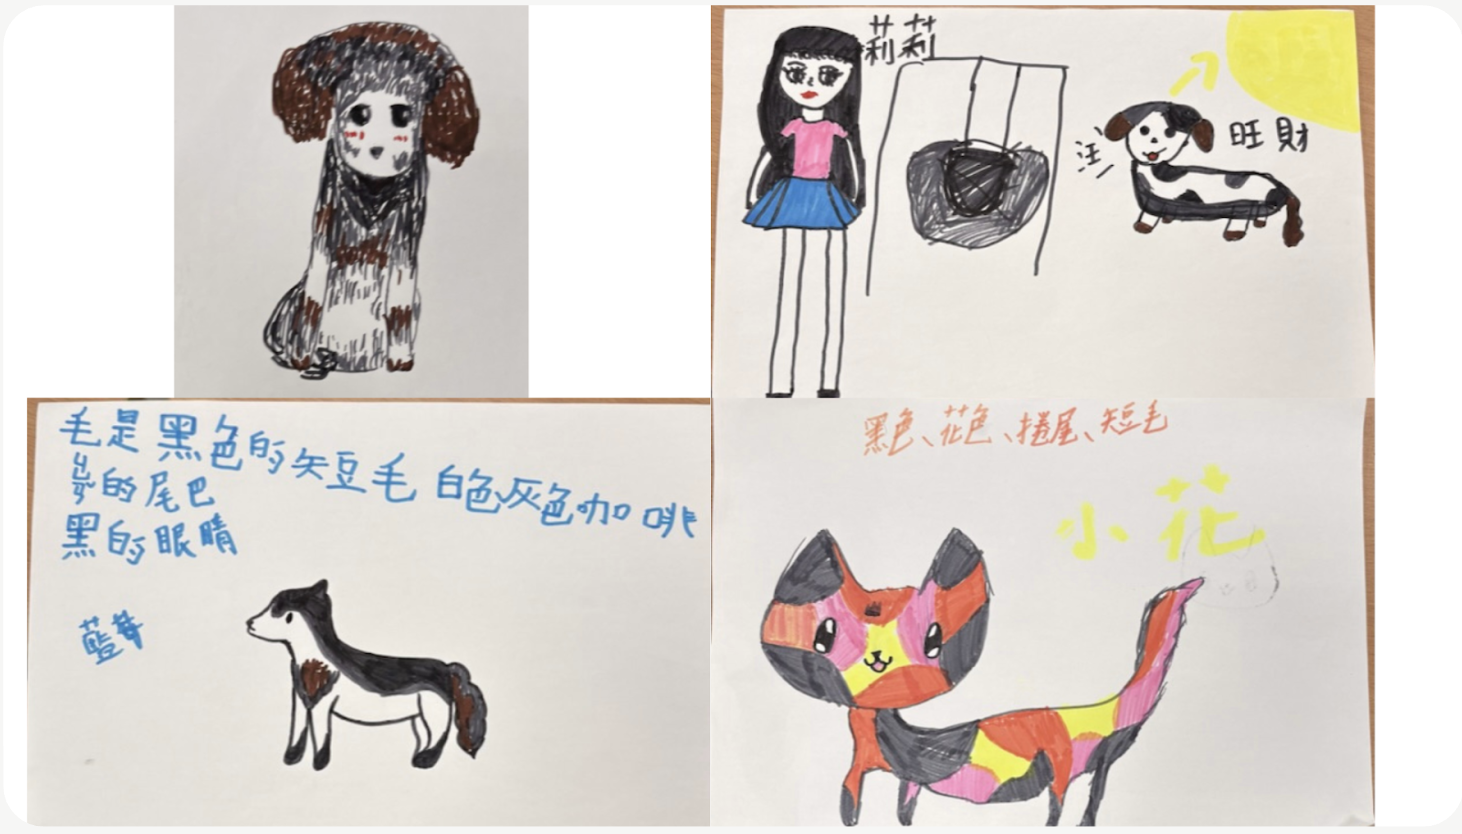 莉莉
汪
旺財
毛是黑色的短毛 白色灰色咖啡
的尾巴
黑的眼睛
藍
黑色、花色、捲尾、短毛
小花